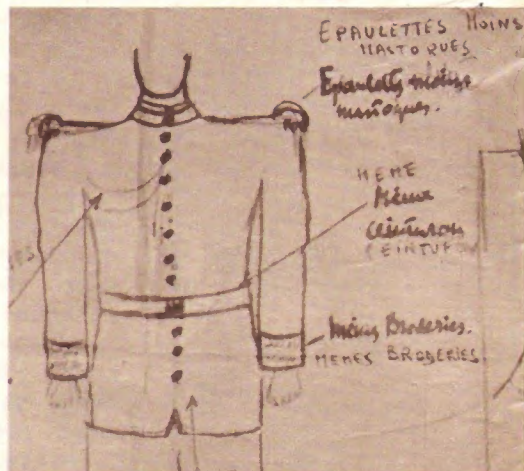 EPAULETTES MOINS
MASTOQUES
Epaulettes moins
mastoques.
MEME
Même
ceinturon
CEINTU
mêmes Broderies.
MEMES BRODERIES.